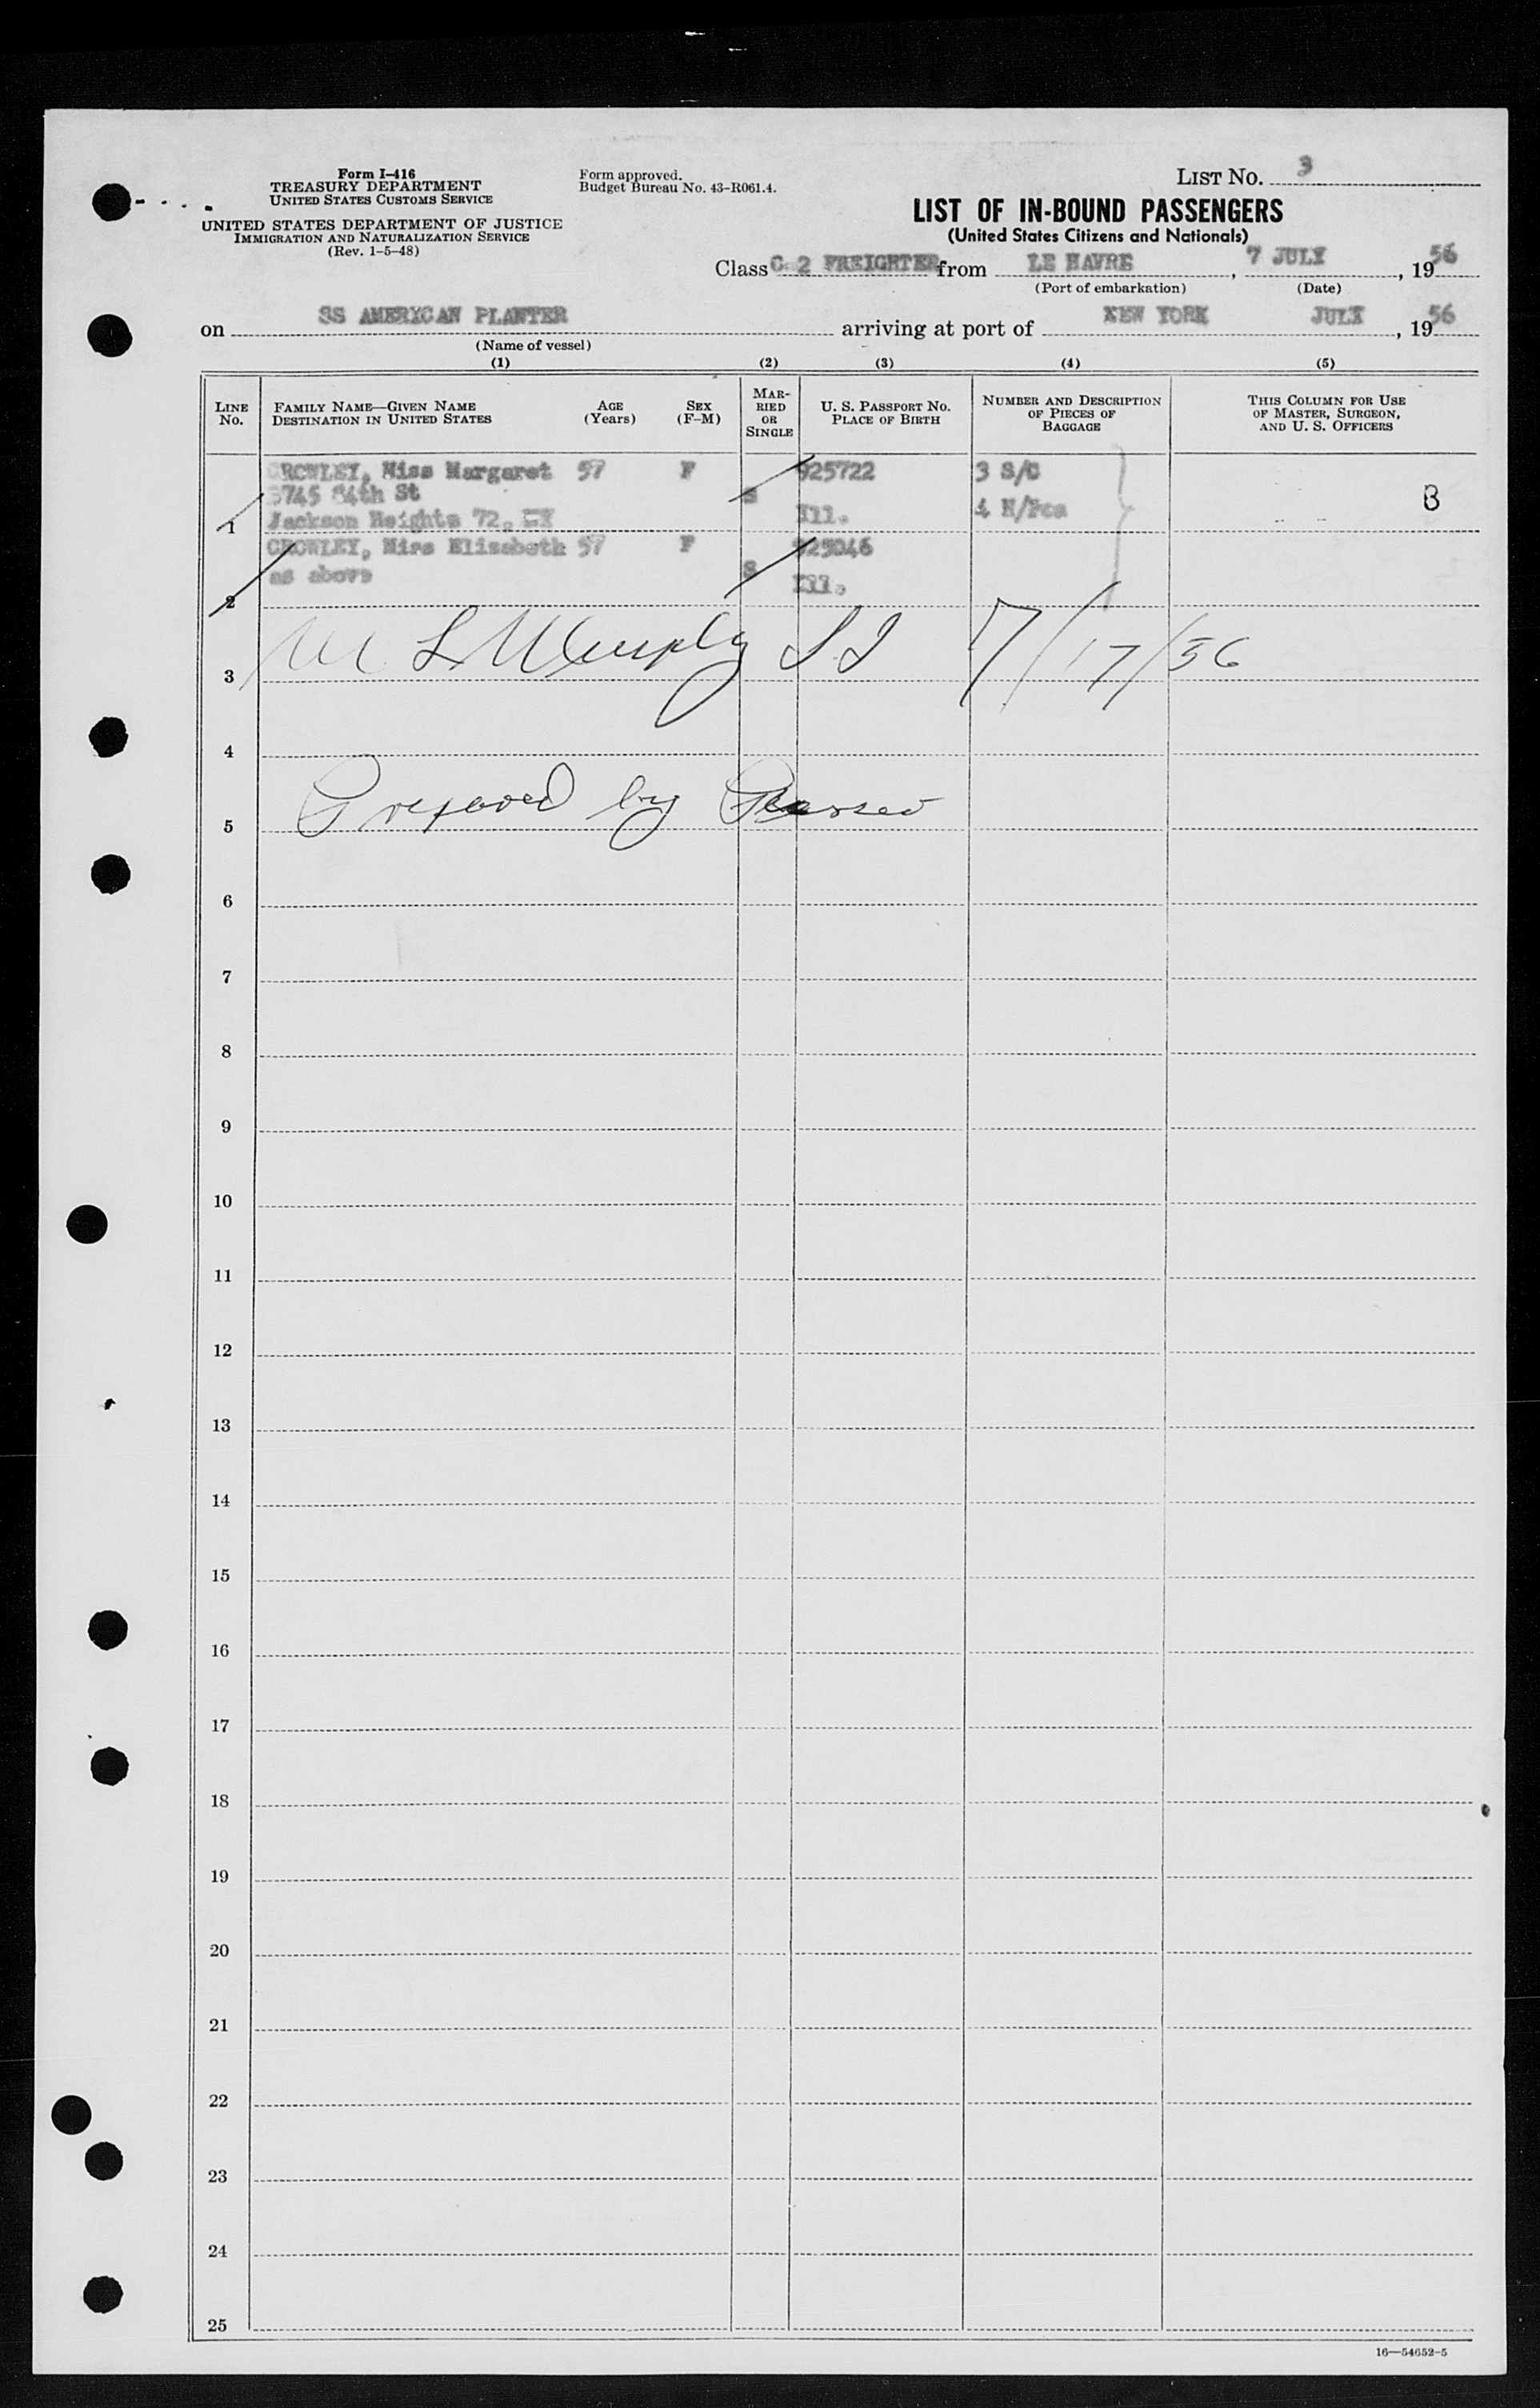 Form I-416
TREASURY DEPARTMENT
UNITED STATES CUSTOMS SERVICE
UNITED STATES DEPARTMENT OF JUSTICE
IMMIGRATION AND NATURALIZATION SERVICE
(Rev. 1-5-48)
Form approved.
Budget Bureau No. 43-R061.4.
LIST NO. 3
LIST OF IN-BOUND PASSENGERS
(United States Citizens and Nationals)
Class C 2 FREIGHTER from LE HAVRE, 7 JULY, 1956
(Port of embarkation) (Date)
on SS AMERICAN PLANTER arriving at port of NEW YORK JULY, 1956
(Name of vessel)
(1) (2) (3) (4) (5)
LINE NO. FAMILY NAME—GIVEN NAME DESTINATION IN UNITED STATES AGE (Years) SEX (F-M) MARRIED OR SINGLE U. S. PASSPORT NO. PLACE OF BIRTH NUMBER AND DESCRIPTION OF PIECES OF BAGGAGE THIS COLUMN FOR USE OF MASTER, SURGEON, AND U. S. OFFICERS
CROWLEY, Miss Margaret 57 F 925722 3 S/C
3745 84th St S B
1 Jackson Heights 72, NY Ill. 4 H/Pcs
CROWLEY, Miss Elizabeth 57 F 925046
as above S Ill.
2
M L Murphy II 7/17/56
3
4
Prepared by Purser
5
6
7
8
9
10
11
12
13
14
15
16
17
18
19
20
21
22
23
24
25
16—54652-5